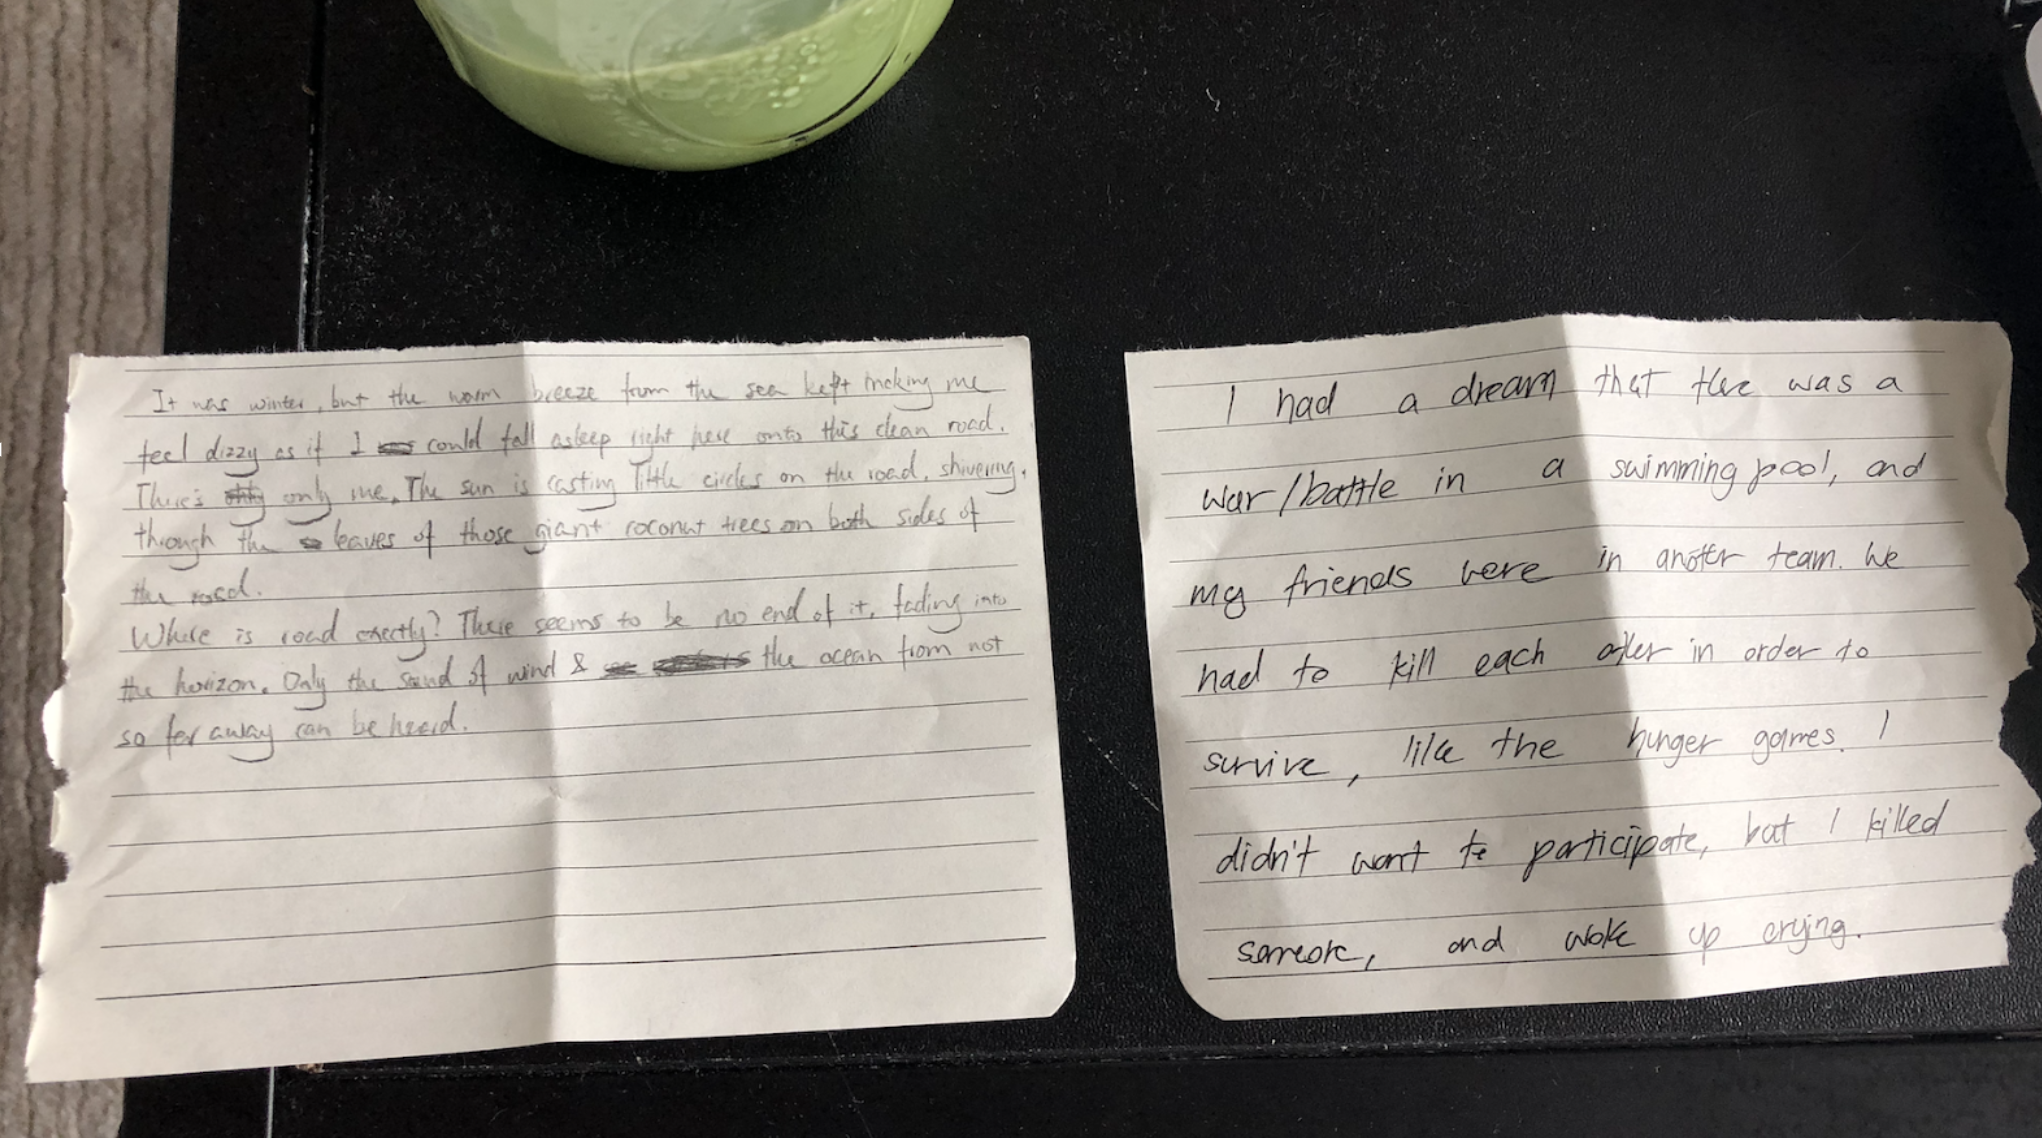 It was winter, but the warm breeze from the sea kept making me
feel dizzy as if I could fall asleep right here onto this clean road.
There's only me. The sun is casting little circles on the road, shivering,
through the leaves of those giant coconut trees on both sides of
the road.
Where is road exactly? There seems to be no end of it, fading into
the horizon. Only the sound of wind & the ocean from not
so far away can be heard.
I had a dream that there was a
war/battle in a swimming pool, and
my friends were in another team. We
had to kill each other in order to
survive, like the hunger games. I
didn't want to participate, but I killed
someone, and woke up crying.